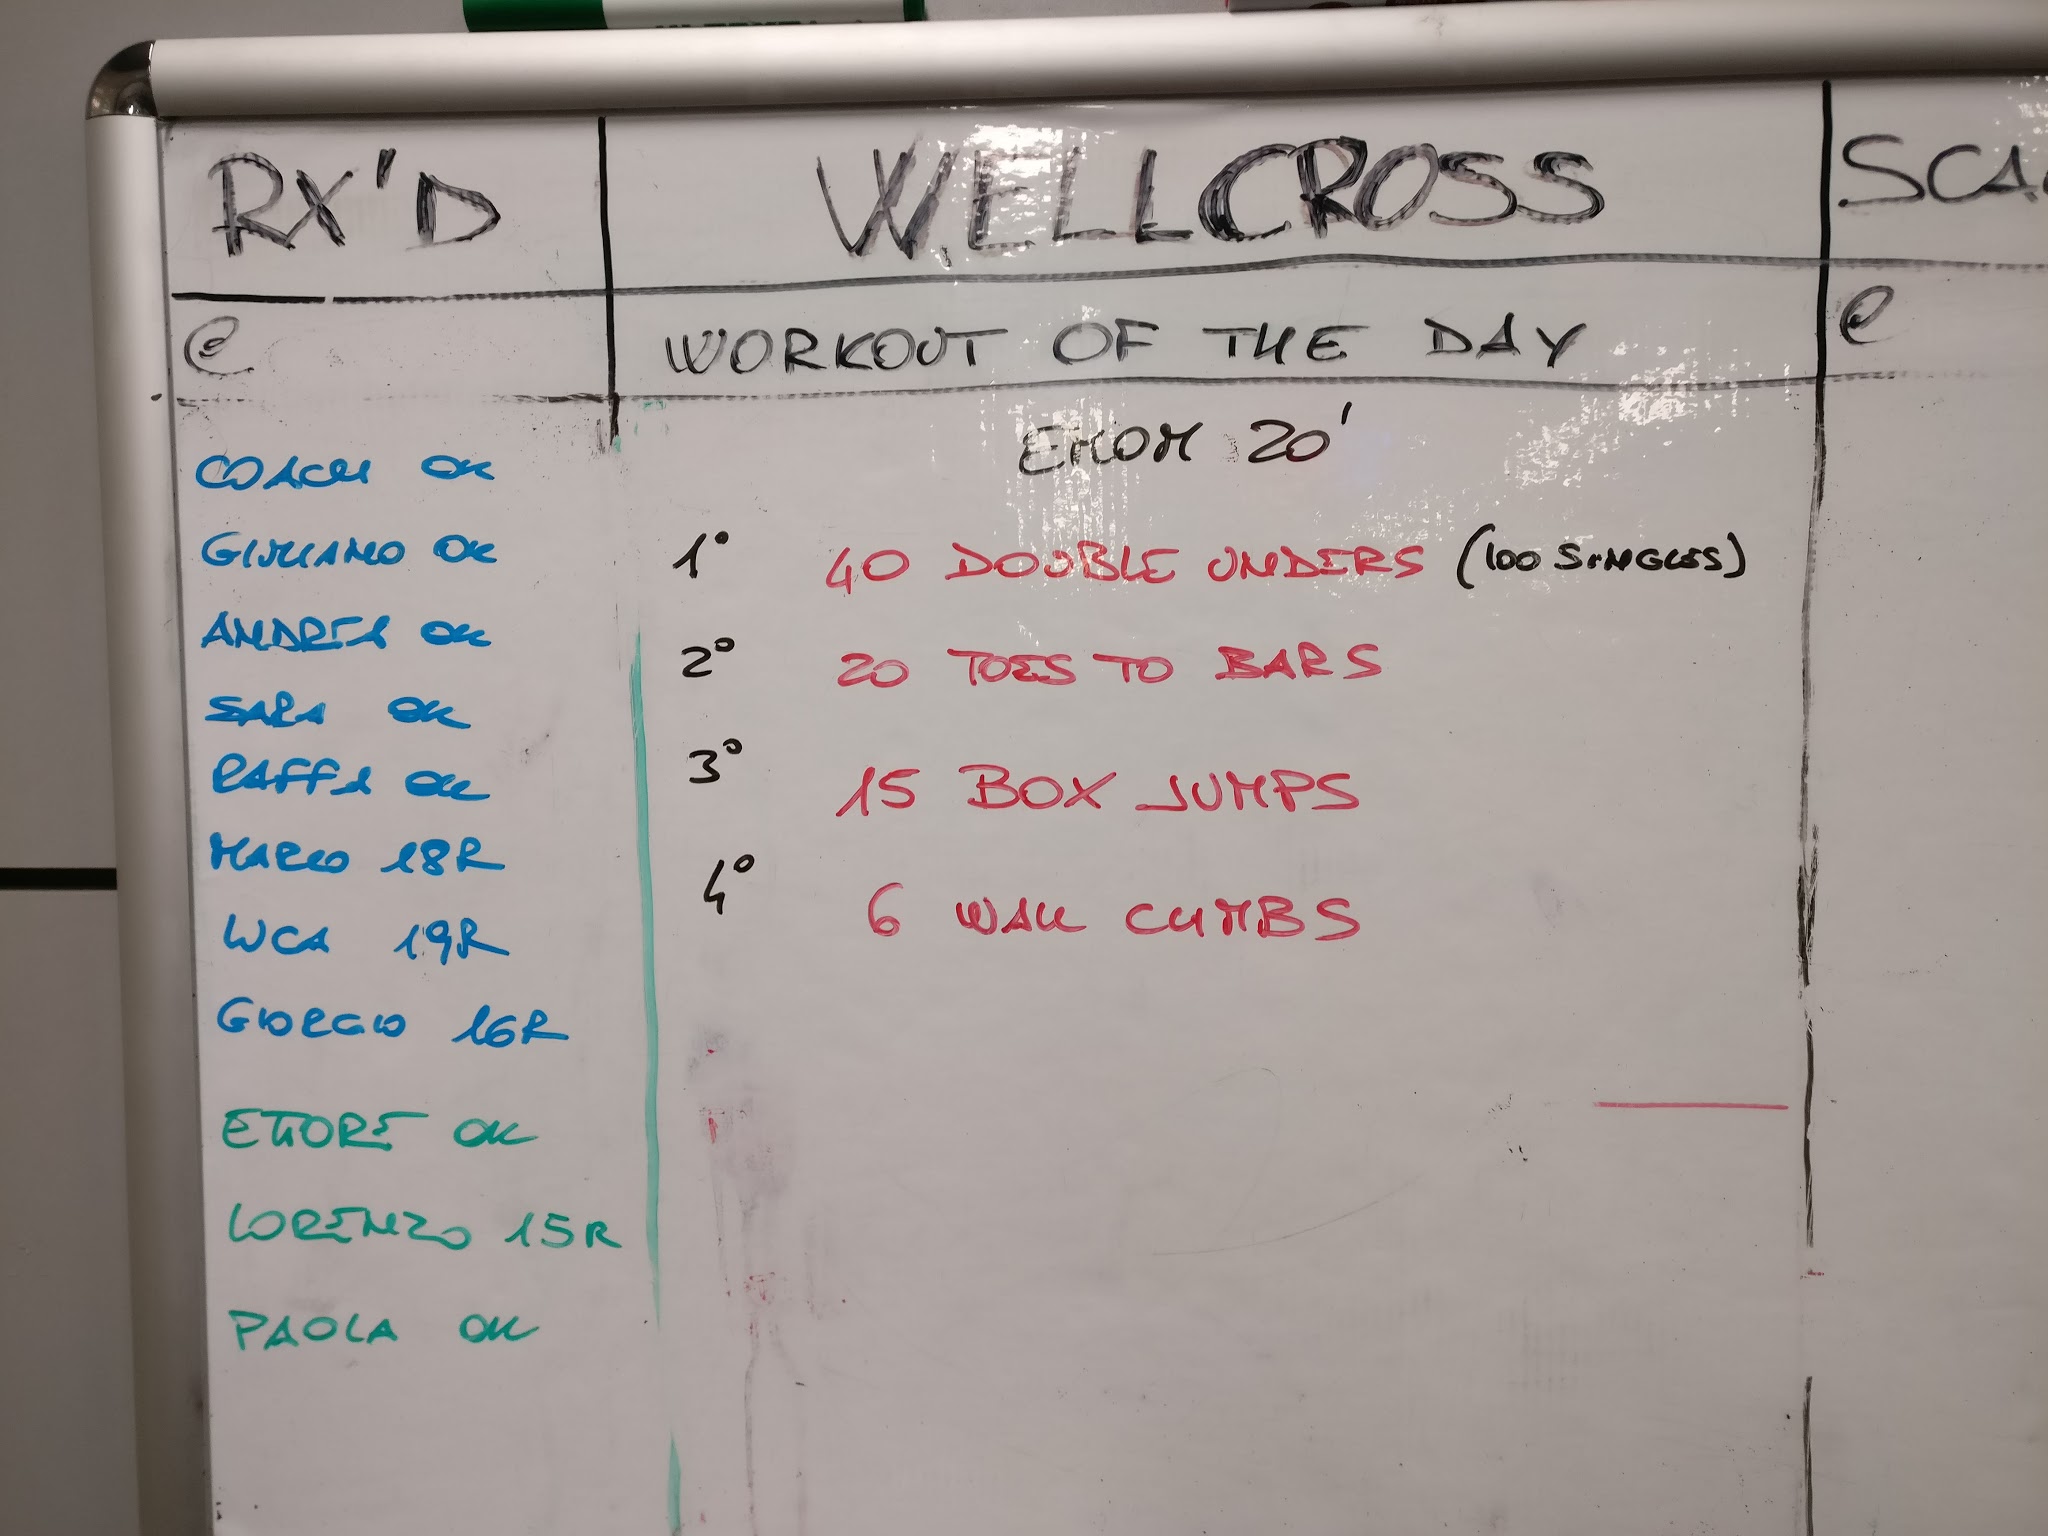 RX'D
WELLCROSS
SCA
@
WORKOUT OF THE DAY
@
EMOM 20'
1° 40 DOUBLE UNDERS (100 SINGLES)
2° 20 TOES TO BARS
3° 15 BOX JUMPS
4° 6 WALL CLIMBS
COACH OK
GIULIANO OK
ANDREA OK
SARA OK
RAFFA OK
MARCO 18R
LUCA 19R
GIORGIO 16R
ETTORE OK
LORENZO 15R
PAOLA OK